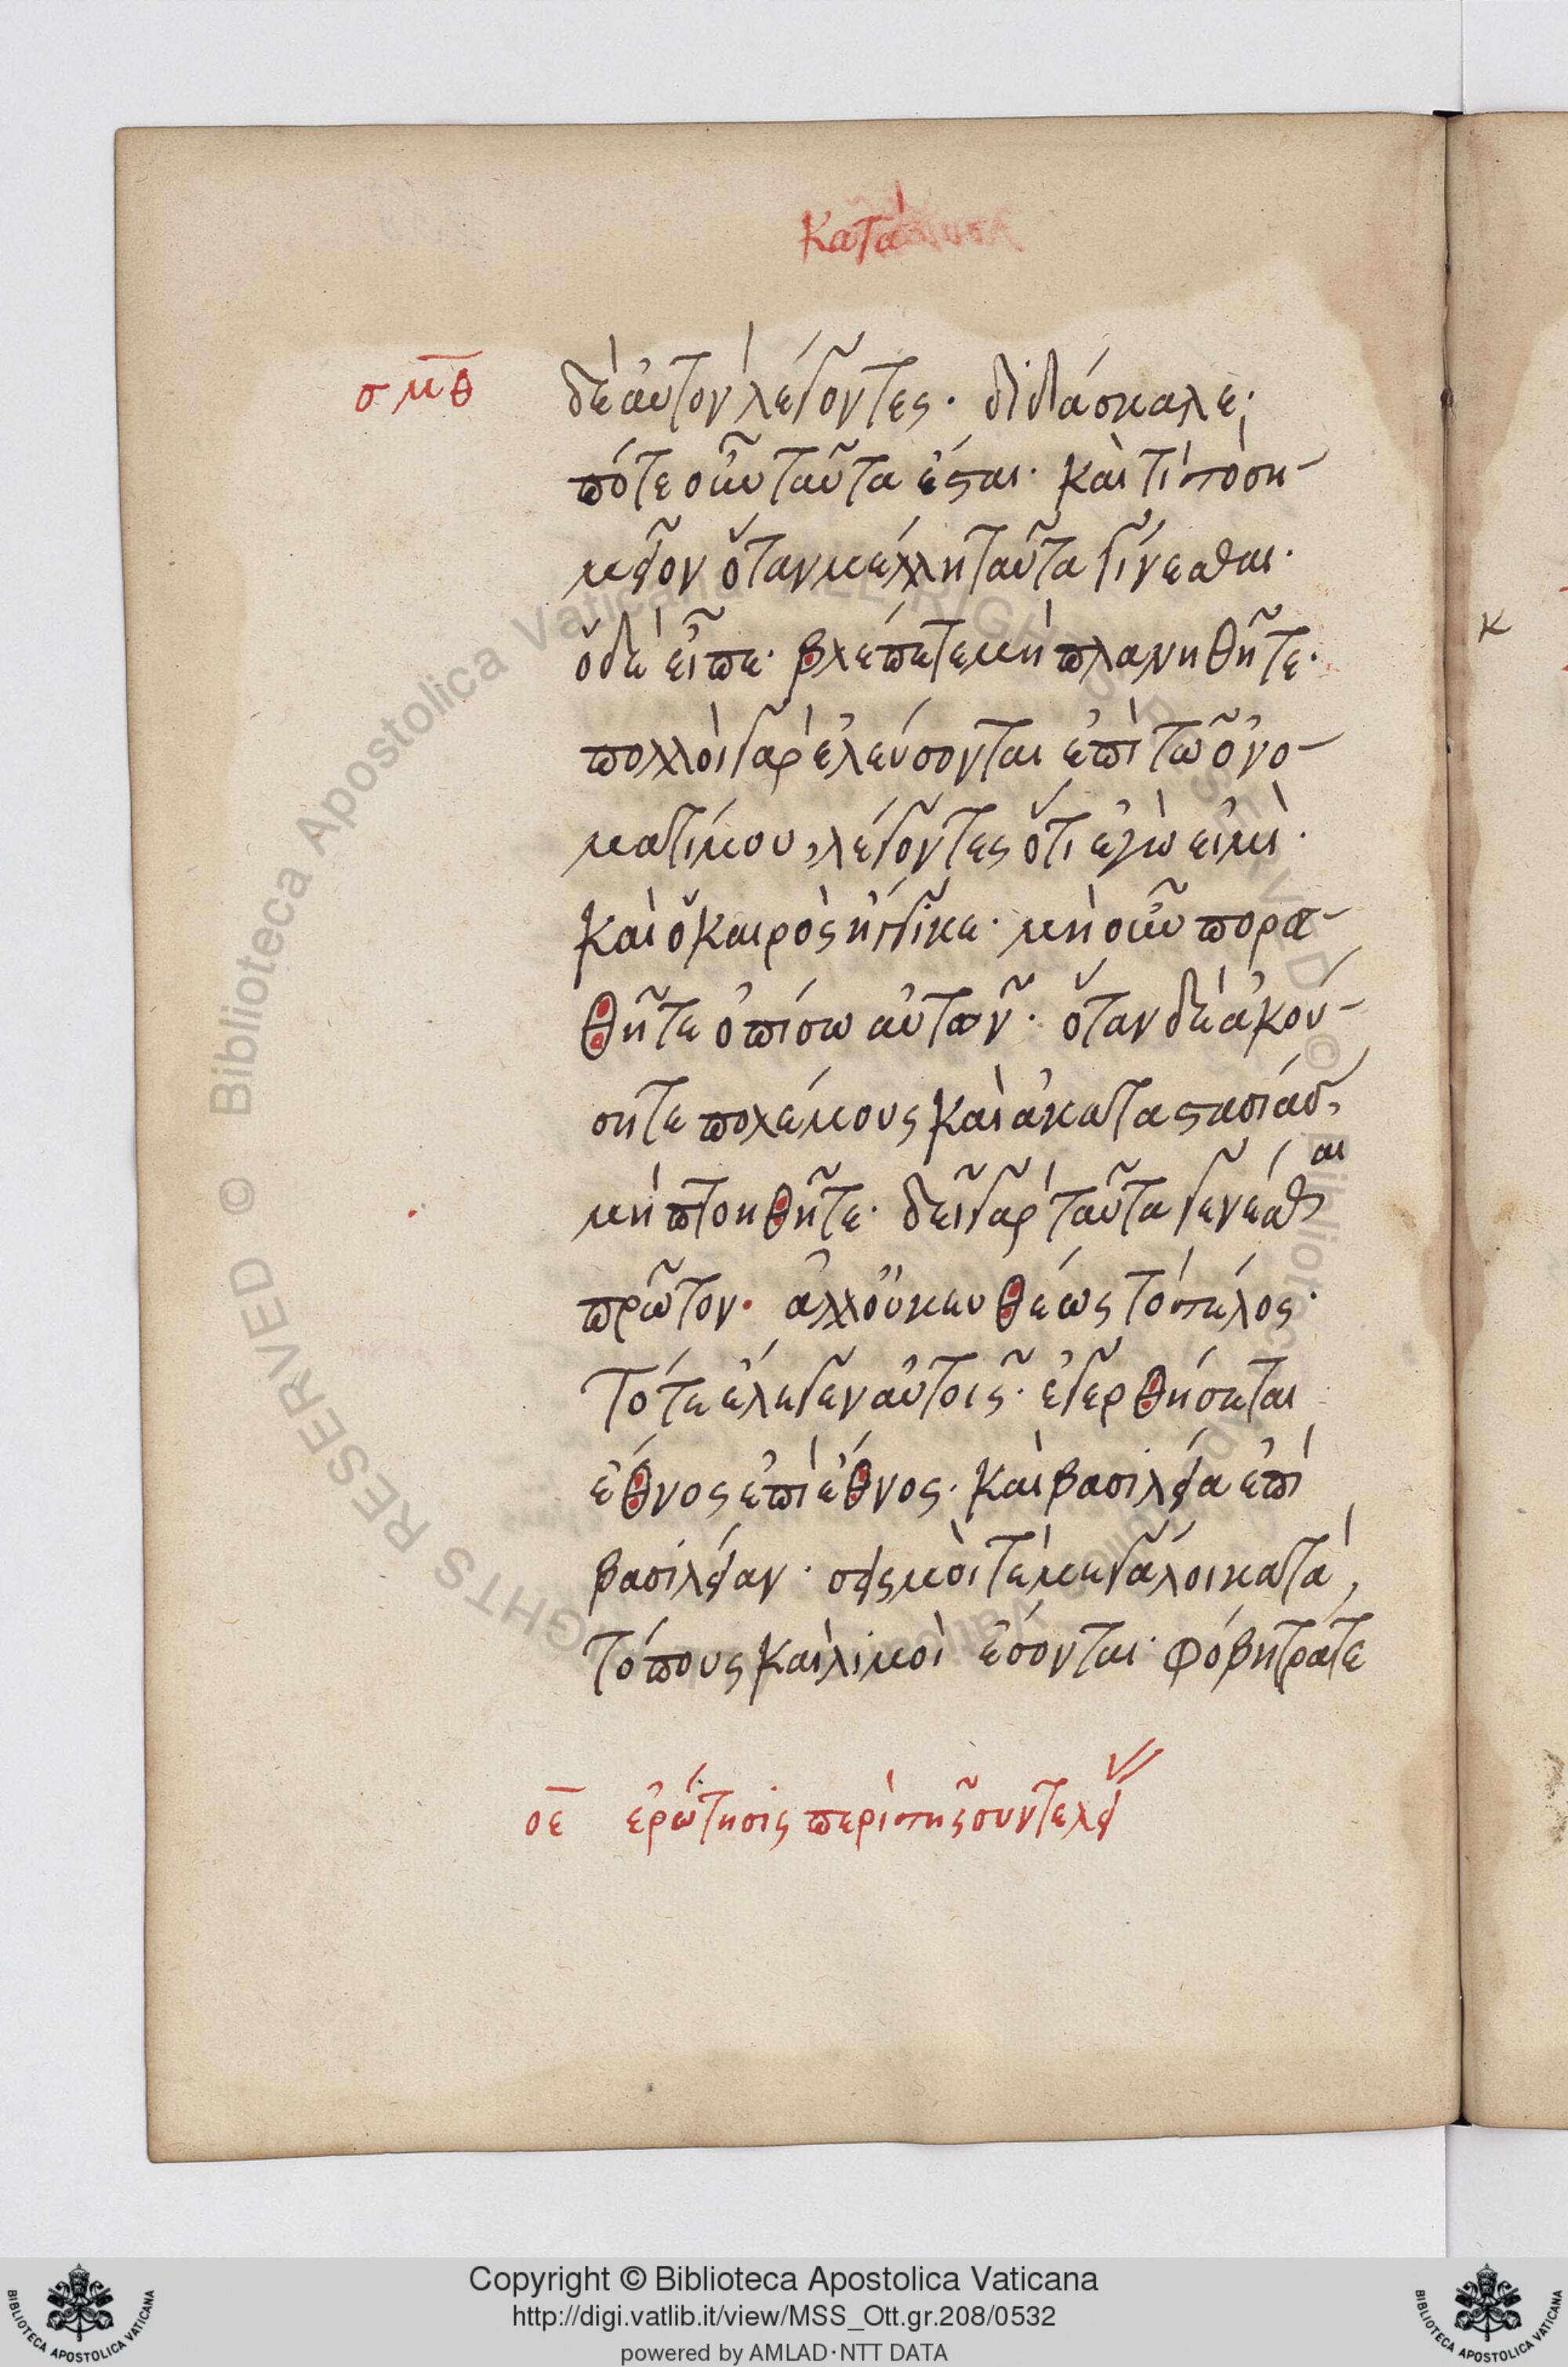 κατὰ
σμθ
δὲ αὐτὸν λέγοντες· διδάσκαλε·
πότε οὖν ταῦτα ἔσται· καὶ τί τὸ ση-
μεῖον ὅταν μέλλη ταῦτα γίνεσθαι·
ὁ δὲ εἶπε· βλέπετε μὴ πλανηθῆτε·
πολλοὶ γὰρ ἐλεύσονται ἐπὶ τῶ ὀνό-
ματί μου, λέγοντες ὅτι ἐγώ εἰμι·
καὶ ὁ καιρὸς ἤγγικε· μὴ οὖν πορευ-
θῆτε ὀπίσω αὐτῶν· ὅταν δὲ ἀκού-
σητε πολέμους καὶ ἀκαταστασίας,
μὴ πτοηθῆτε· δεῖ γὰρ ταῦτα γενέσθαι
πρῶτον· ἀλλ' οὐκ εὐθέως τὸ τέλος·
Τότε ἔλεγεν αὐτοῖς· ἐγερθήσεται
ἔθνος ἐπὶ ἔθνος· καὶ βασιλεία ἐπὶ
βασιλείαν· σεισμοί τε μεγάλοι κατὰ
τόπους καὶ λιμοὶ ἔσονται· φόβητρά τε
οε ἐρώτησις περὶ τῆς συντελεί
κ
Copyright © Biblioteca Apostolica Vaticana
http://digi.vatlib.it/view/MSS_Ott.gr.208/0532
powered by AMLAD·NTT DATA